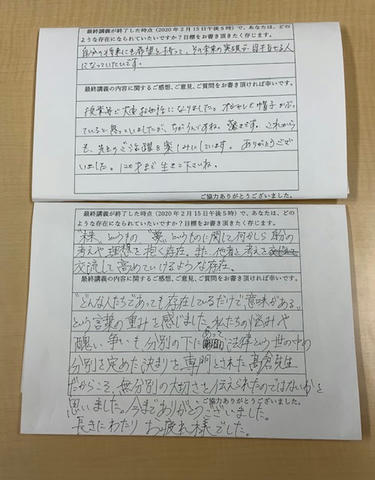 最終講義が終了した時点（2020年2月15日午後5時）で、あなたは、どの
ような存在になられていたいですか？目標をお書き頂きたく存じます。
自分の将来にも希望を持って、その未来の実現を目指せる人
になっていたいです。
最終講義の内容に関するご感想、ご意見、ご質問をお書き頂ければ幸いです。
授業等で大変お世話になりました。オシャレで帽子かぶっ
ていると思っていましたが、ちがうんですね。驚きです。これから
も、先生のご活躍を楽しみにしています。ありがとうござ
いました。
ご協力ありがとうございました。
最終講義が終了した時点（2020年2月15日午後5時）で、あなたは、どの
ような存在になられていたいですか？目標をお書き頂きたく存じます。
未来というもの 夢というものに関して何かしら自分の
考えや理想を抱く存在。また、他者と考えを
交流して高めていけるような存在。
最終講義の内容に関するご感想、ご意見、ご質問をお書き頂ければ幸いです。
“どんな人たちであっても存在しているだけで意味がある”
という言葉の重みを感じました。私たちの悩みや
醜い争いも分別の下にあって法律という世の中の
分別を定めた決まりを専門とされた高倉先生
だからこそ、無分別の大切さを伝えられたのではないかと
思いました。今までありがとうございました。
ご協力ありがとうございました。
長きにわたり お疲れ様でした。